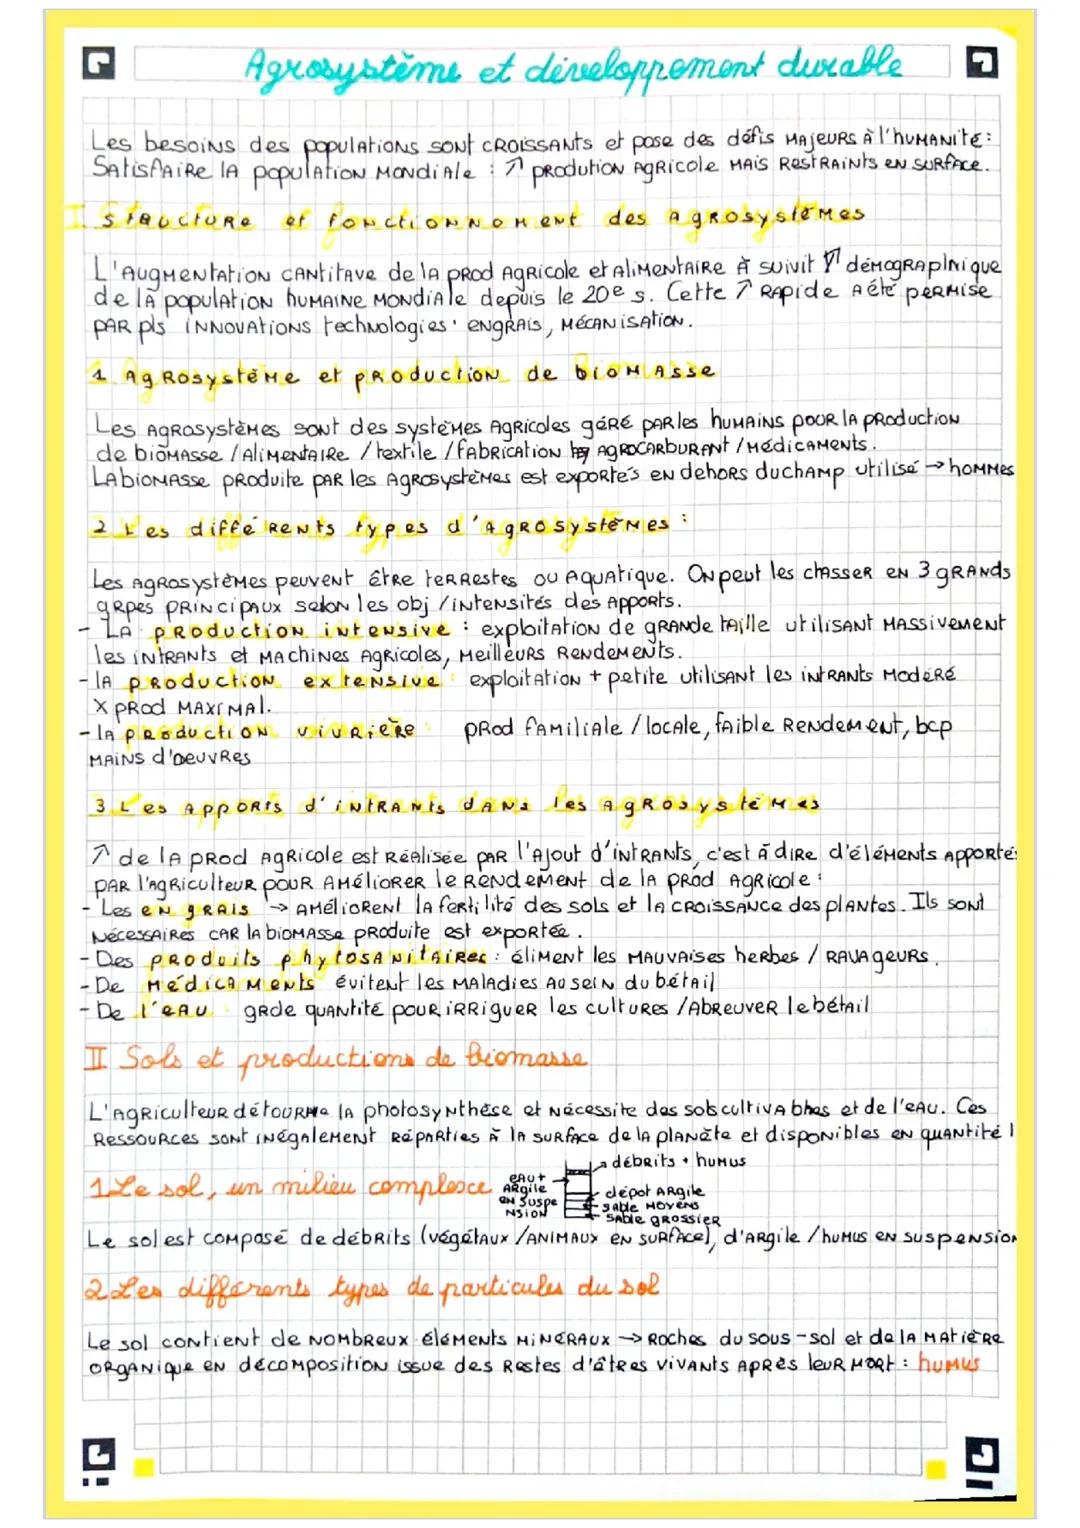 Agrosystème et développement durable
Les besoins des populations sont croissants et pose des défis majeurs à l'humanité :
Satisfaire la population mondiale : ↗ prodution agricole mais restraints en surface.
I Structure et fonctionnement des agrosystèmes
L'augmentation cantitave de la prod agricole et alimentaire à suivit ↗ démographique
de la population humaine mondiale depuis le 20e s. Cette ↗ rapide a été permise
par pls innovations technologies : engrais, mécanisation.
1 Agrosystème et production de biomasse
Les agrosystèmes sont des systèmes agricoles géré par les humains pour la production
de biomasse / alimentaire / textile / fabrication agrocarburant / médicaments.
La biomasse produite par les agrosystèmes est exportés en dehors du champ utilisé → hommes
2 Les différents types d'agrosystèmes :
Les agrosystèmes peuvent être terrestes ou aquatique. On peut les classer en 3 grands
grpes principaux selon les obj / intensités des apports.
- La production intensive : exploitation de grande taille utilisant massivement
les intrants et machines agricoles, meilleurs rendements.
- la production extensive : exploitation + petite utilisant les intrants modéré
X prod maximal.
- la production vivrière : prod familiale / locale, faible rendement, bcp
mains d'oeuvres
3 Les apports d'intrants dans les agrosystèmes
↗ de la prod agricole est réalisée par l'ajout d'intrants, c'est à dire d'éléments apportés
par l'agriculteur pour améliorer le rendement de la prod agricole :
- Les engrais → améliorent la fertilité des sols et la croissance des plantes. Ils sont
nécessaires car la biomasse produite est exportée.
- Des produits phytosanitaires : éliment les mauvaises herbes / ravageurs.
- De médicaments évitent les maladies au sein du bétail
- De l'eau grde quantité pour irriguer les cultures / abreuver le bétail
II Sols et productions de biomasse
L'agriculteur détourne la photosynthèse et nécessite des sols cultivables et de l'eau. Ces
ressources sont inégalement réparties à la surface de la planète et disponibles en quantité
1 Le sol, un milieu complexe
eau +
argile
en suspe
nsion
débrits + humus
dépot argile
sable moyens
sable grossier
Le sol est composé de débrits (végétaux / animaux en surface), d'argile / humus en suspension
2 Les différents types de particules du sol
Le sol contient de nombreux éléments minéraux → roches du sous-sol et de la matière
organique en décomposition issue des restes d'êtres vivants après leur mort : humus